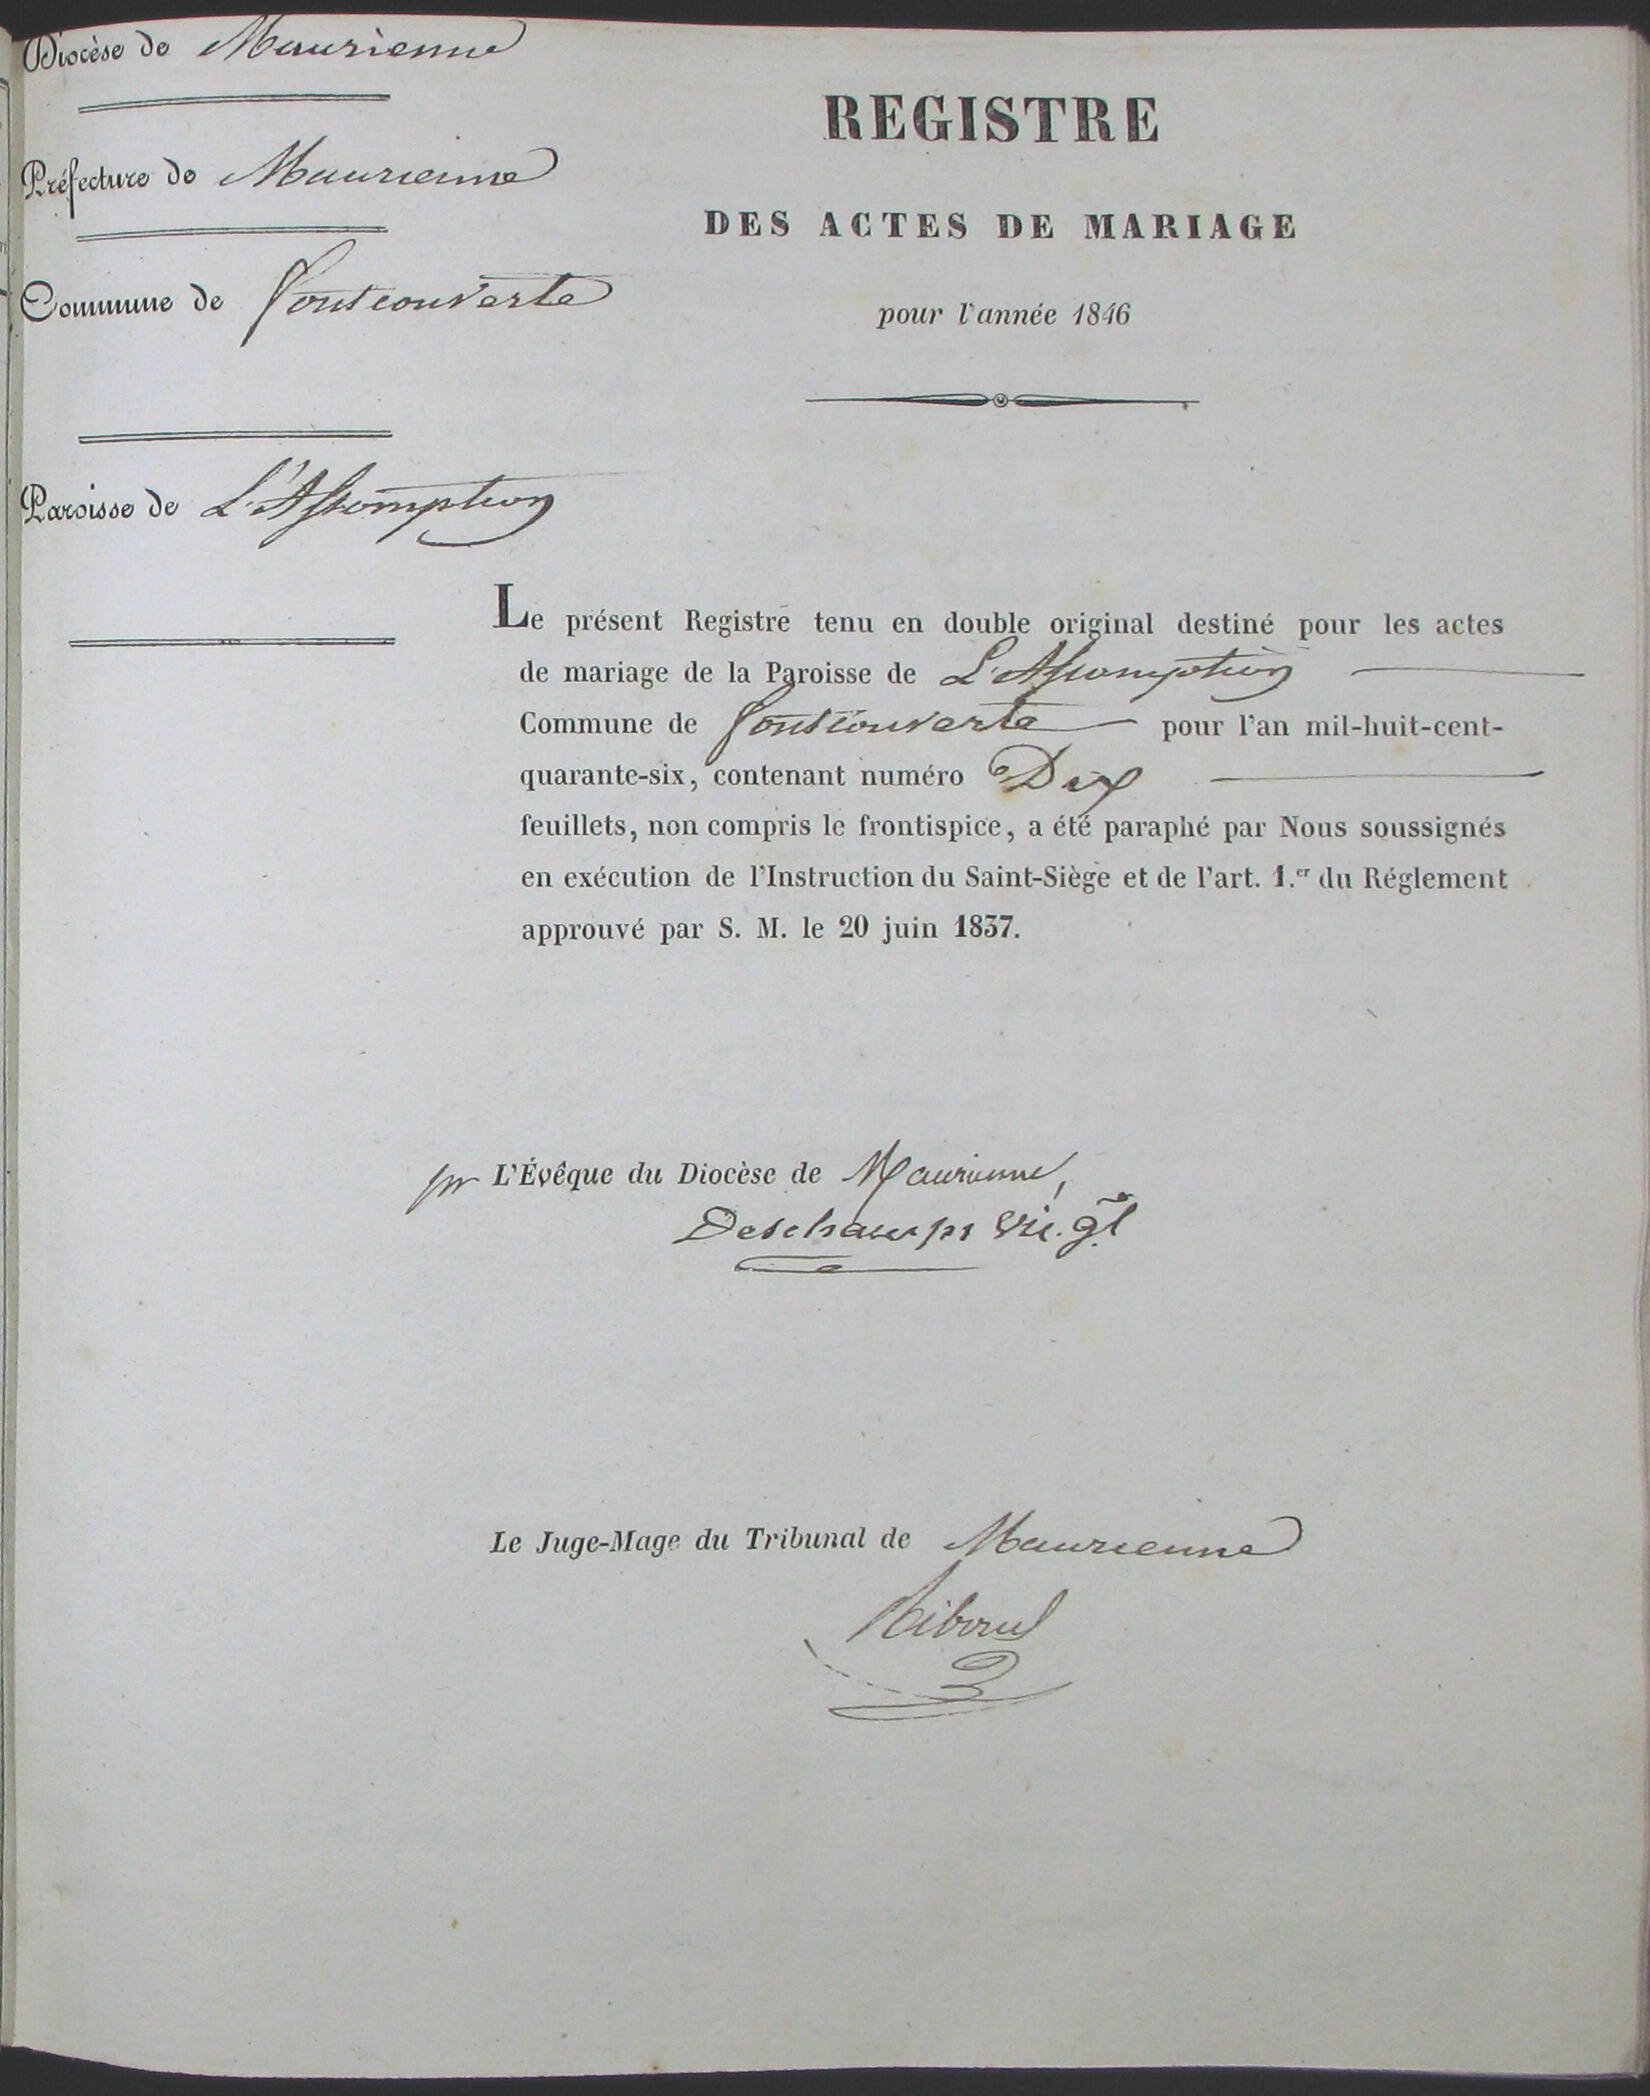 Diocèse de Maurienne
Préfecture de Maurienne
Commune de Fontcouverte
Paroisse de L'Assomption
REGISTRE
DES ACTES DE MARIAGE
pour l'année 1846
Le présent Registre tenu en double original destiné pour les actes
de mariage de la Paroisse de L'Assomption
Commune de Fontcouverte pour l'an mil-huit-cent-
quarante-six, contenant numéro Dix
feuillets, non compris le frontispice, a été paraphé par Nous soussignés
en exécution de l'Instruction du Saint-Siège et de l'art. 1.er du Réglement
approuvé par S. M. le 20 juin 1837.
pr L'Évêque du Diocèse de Maurienne,
Deschamps vic. gl
Le Juge-Mage du Tribunal de Maurienne